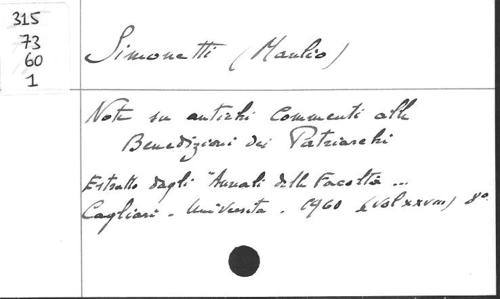 315
73
60
1
Simonetti (Manlio)
Note su antichi Commenti alle
Benedizioni dei Patriarchi
Estratto dagli "Annali delle Facoltà ...
Cagliari - Università - 1960 (vol XXVIII) 8°